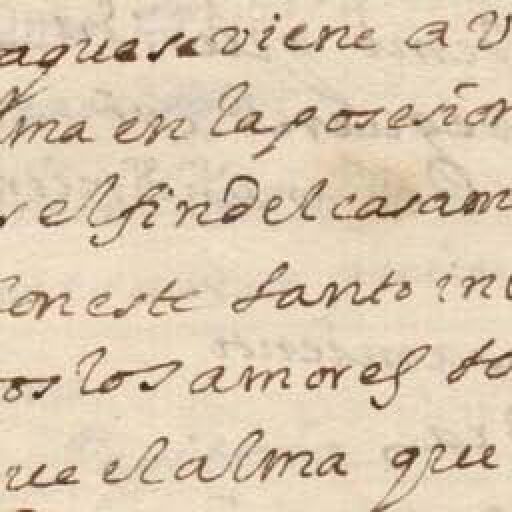 aquese viene a V
lma en la posesion
r el fin del casam
con este santo int
os los amores so
ue el alma que